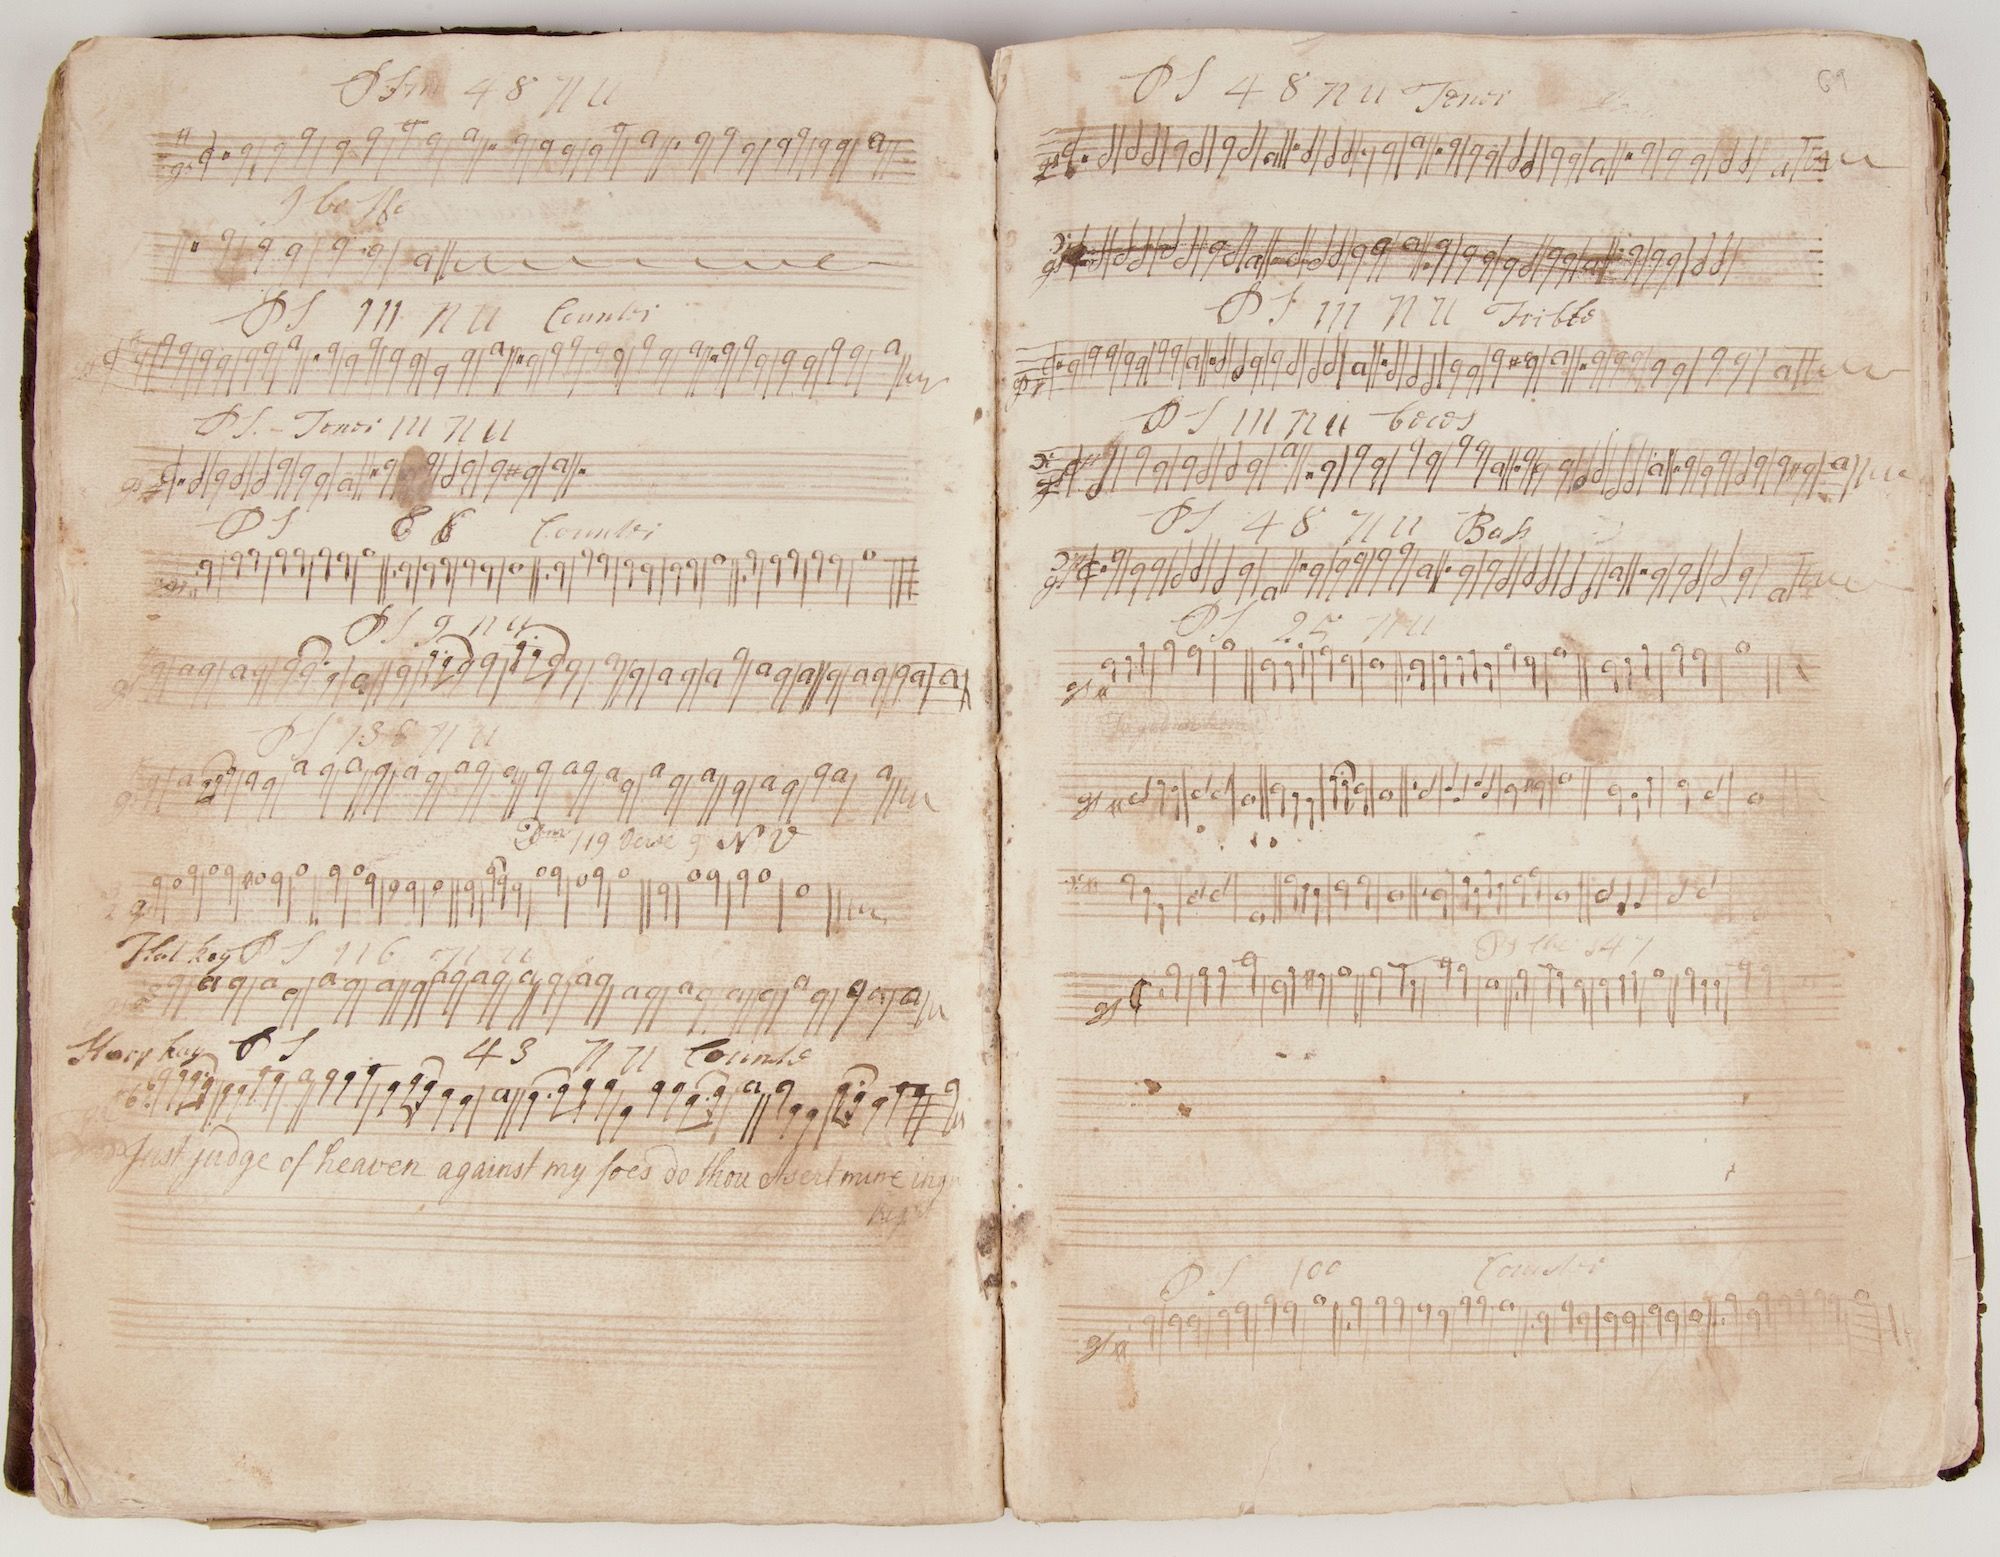 PSm 48 n u
PS 111 n u Counter
PS. - Tenor 111 n u
PS 8 8 Counter
PS 9 n u
PS 136 n u
Psm 119 Verse 9 N V
Flat key PS 116 n u
Sharp key PS 43 n u Counter
Just judge of heaven against my foes do thou assert mine
69
PS 48 n u Tenor
PS 111 n u Trible
PS 111 n u
PS 48 n u Bass
PS 25 n u
Ps the 147
PS 100 Counter